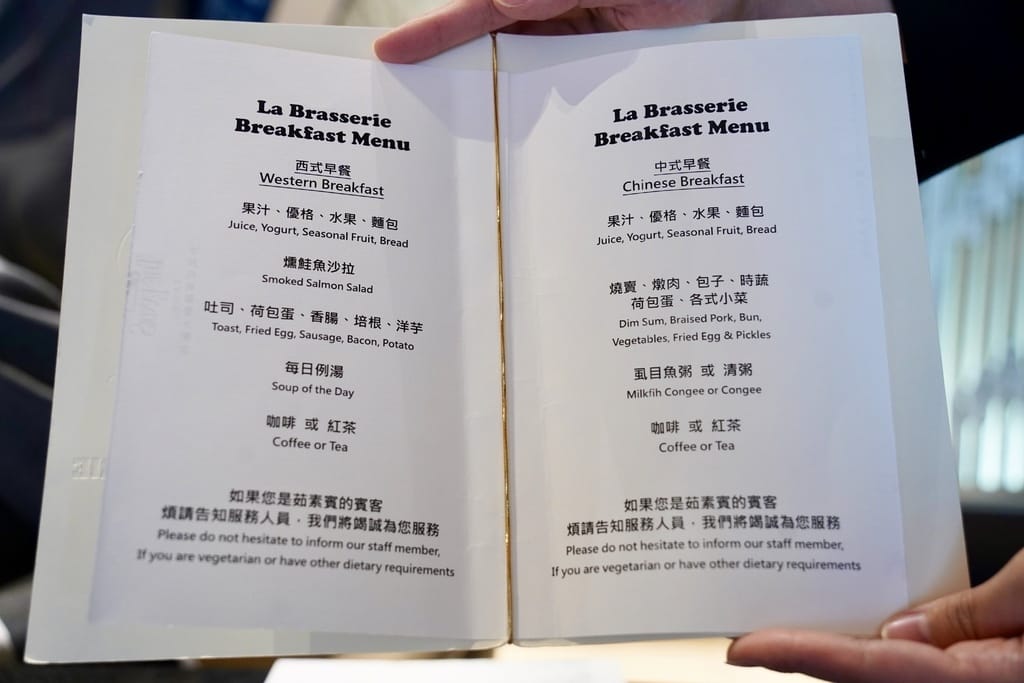 La Brasserie
Breakfast Menu
西式早餐
Western Breakfast
果汁、優格、水果、麵包
Juice, Yogurt, Seasonal Fruit, Bread
燻鮭魚沙拉
Smoked Salmon Salad
吐司、荷包蛋、香腸、培根、洋芋
Toast, Fried Egg, Sausage, Bacon, Potato
每日例湯
Soup of the Day
咖啡 或 紅茶
Coffee or Tea
如果您是茹素賓的賓客
煩請告知服務人員，我們將竭誠為您服務
Please do not hesitate to inform our staff member,
If you are vegetarian or have other dietary requirements
La Brasserie
Breakfast Menu
中式早餐
Chinese Breakfast
果汁、優格、水果、麵包
Juice, Yogurt, Seasonal Fruit, Bread
燒賣、燉肉、包子、時蔬
荷包蛋、各式小菜
Dim Sum, Braised Pork, Bun,
Vegetables, Fried Egg & Pickles
虱目魚粥 或 清粥
Milkfih Congee or Congee
咖啡 或 紅茶
Coffee or Tea
如果您是茹素賓的賓客
煩請告知服務人員，我們將竭誠為您服務
Please do not hesitate to inform our staff member,
If you are vegetarian or have other dietary requirements